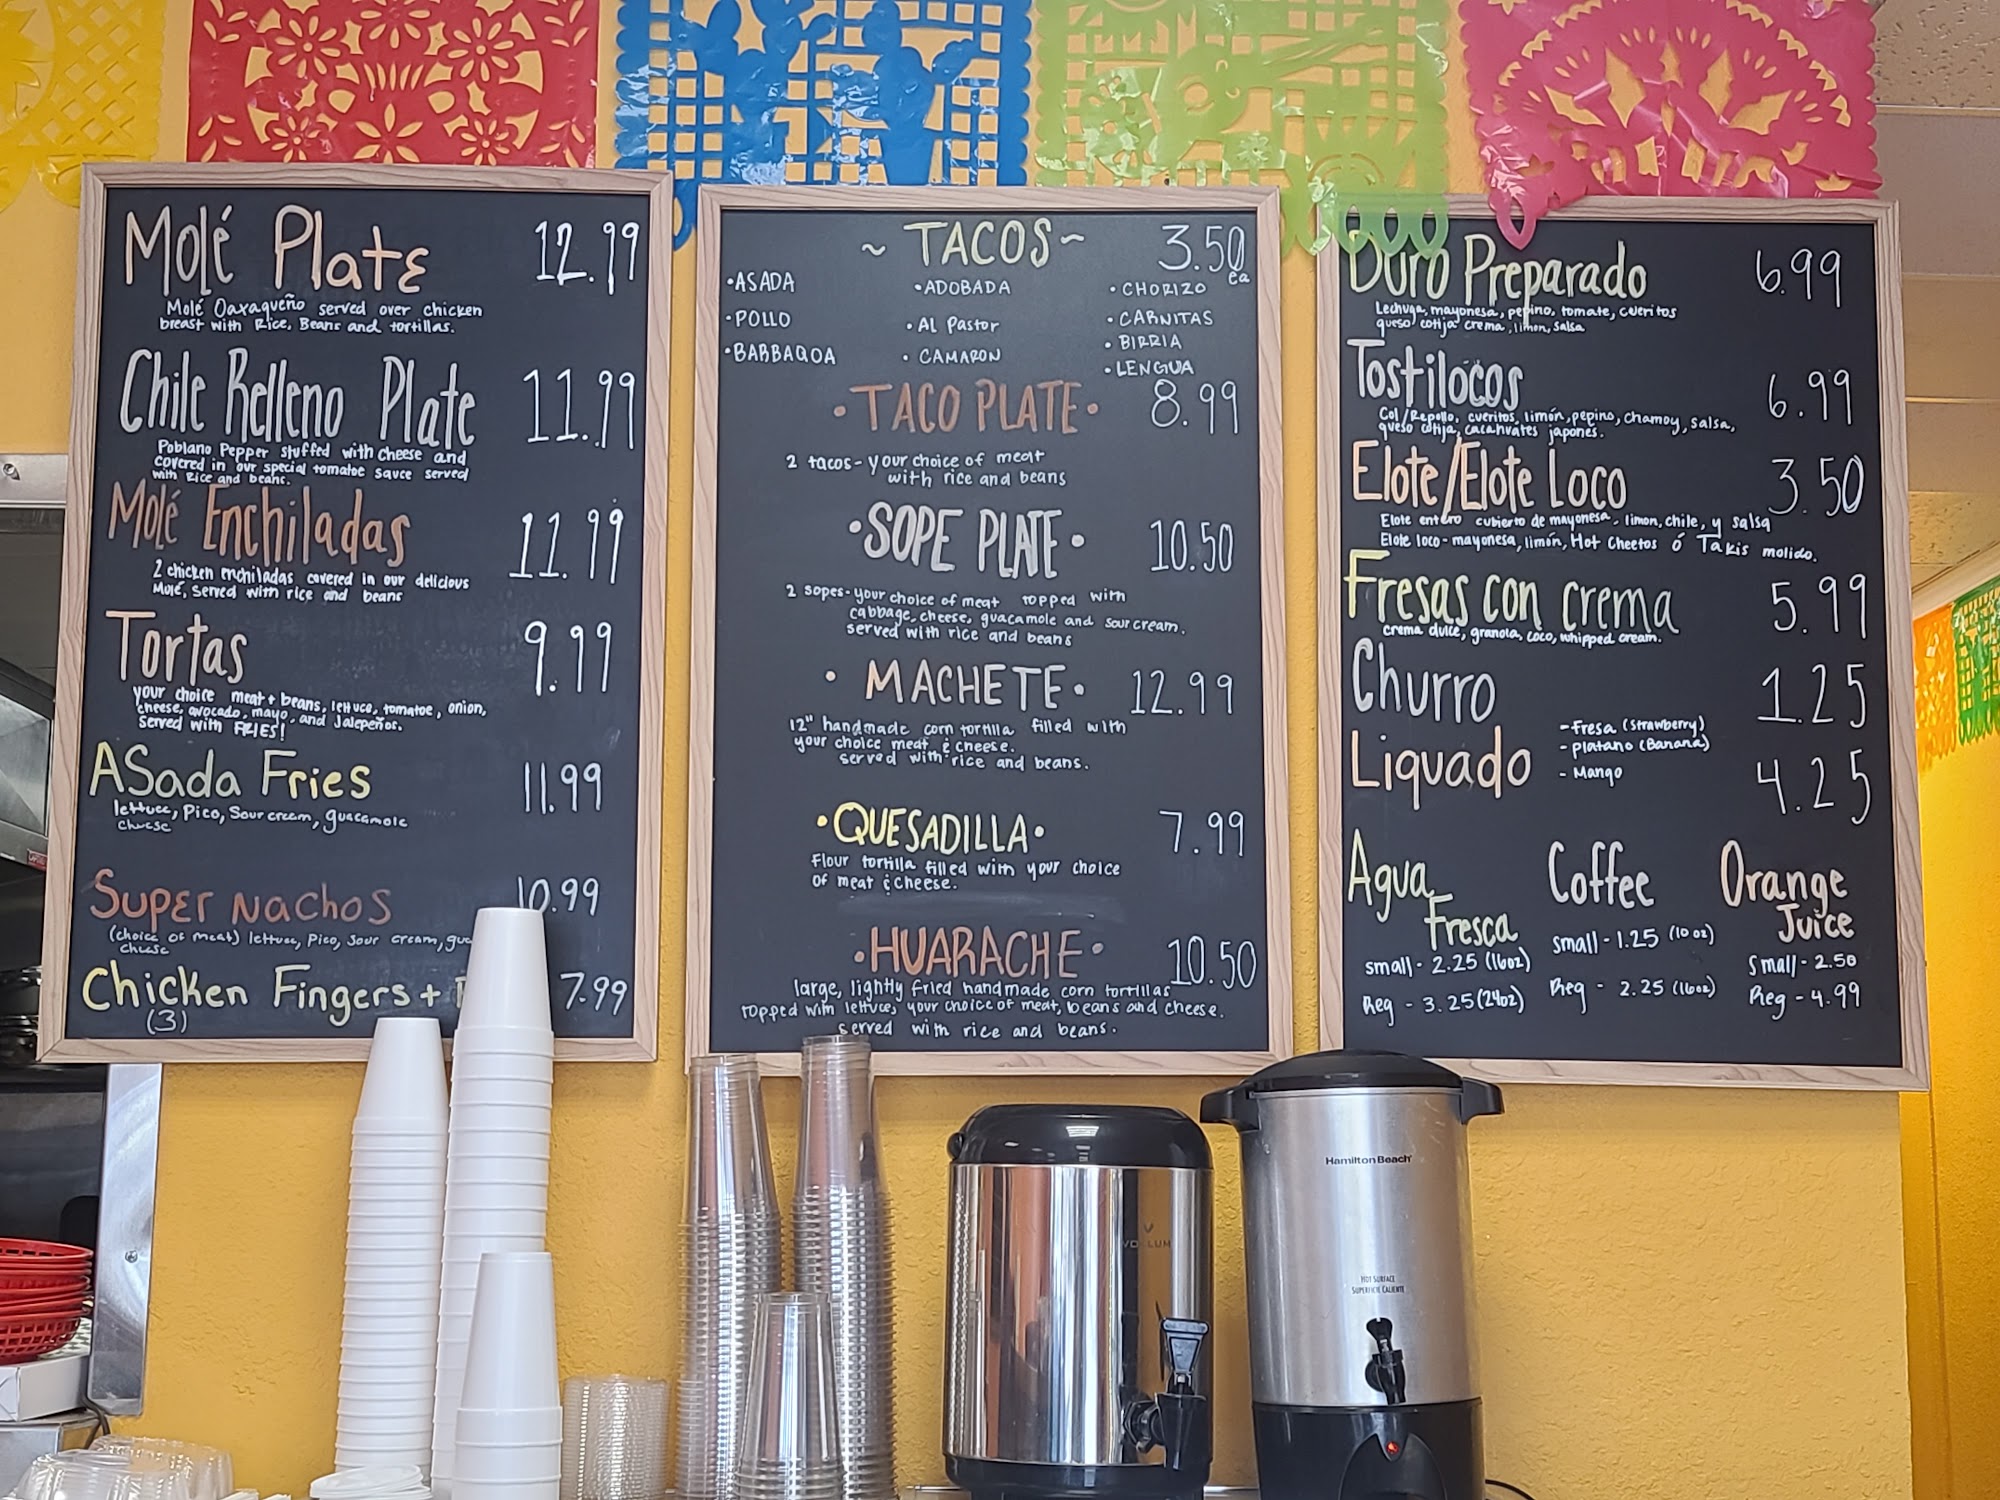 Molé Plate 12.99
Molé Oaxaqueño served over chicken
breast with Rice, Beans and tortillas.
Chile Relleno Plate 11.99
Poblano Pepper stuffed with cheese and
covered in our special tomatoe sauce served
with Rice and beans.
Molé Enchiladas 11.99
2 chicken enchiladas covered in our delicious
Molé, served with rice and beans
Tortas 9.99
your choice meat + beans, lettuce, tomatoe, onion,
cheese, avocado, mayo, and Jalepeños.
Served with FRIES!
ASada Fries 11.99
lettuce, Pico, Sour cream, guacamole
cheese
Super Nachos 10.99
(choice of meat) lettuce, Pico, Sour cream, gua
cheese
Chicken Fingers + 7.99
(3)
~ TACOS ~ 3.50 ea
• ASADA • ADOBADA • CHORIZO
• POLLO • Al Pastor • CARNITAS
• BARBAQOA • CAMARON • BIRRIA
• LENGUA
• TACO PLATE • 8.99
2 tacos - your choice of meat
with rice and beans
• SOPE PLATE • 10.50
2 sopes - your choice of meat topped with
cabbage, cheese, guacamole and sour cream.
served with rice and beans
• MACHETE • 12.99
12" handmade corn tortilla filled with
your choice meat & cheese.
served with rice and beans.
• QUESADILLA • 7.99
Flour tortilla filled with your choice
of meat & cheese.
• HUARACHE • 10.50
large, lightly fried handmade corn tortillas
topped with lettuce, your choice of meat, beans and cheese.
served with rice and beans.
Duro Preparado 6.99
Lechuga, mayonesa, pepino, tomate, cueritos
queso cotija crema, limon, salsa
Tostilocos 6.99
Col/Repollo, cueritos, limón, pepino, chamoy, salsa,
queso cotija, cacahuates japones.
Elote/Elote Loco 3.50
Elote entero cubierto de mayonesa, limon, chile, y salsa
Elote loco - mayonesa, limón, Hot Cheetos ó Takis molido.
Fresas con crema 5.99
crema dulce, granola, coco, whipped cream.
Churro 1.25
Liquado 4.25
- Fresa (Strawberry)
- platano (Banana)
- Mango
Agua Fresca
small - 2.25 (16oz)
Reg - 3.25 (24oz)
Coffee
small - 1.25 (10oz)
Reg - 2.25 (16oz)
Orange Juice
Small - 2.50
Reg - 4.99
Hamilton Beach
HOT SURFACE
SUPERFICIE CALIENTE